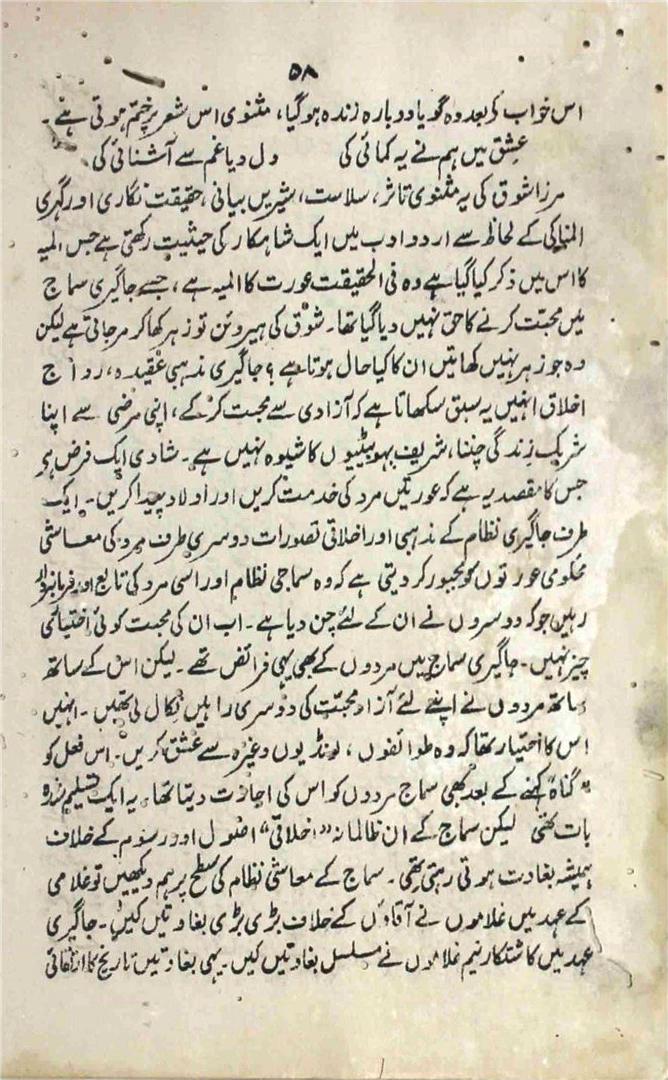 ۵۸
اس خواب کے بعد وہ گویا دوبارہ زندہ ہو گیا، مثنوی اس شعر پر ختم ہوتی ہے۔
عشق میں ہم نے یہ کمائی کی دل دیا غم سے آشنائی کی
مرزا شوق کی یہ مثنوی تاثر، سلاست، شیریں بیانی، حقیقت نگاری اور گہری
المناکی کے لحاظ سے اردو ادب میں ایک شاہکار کی حیثیت رکھتی ہے جس المیہ
کا اس میں ذکر کیا گیا ہے وہ فی الحقیقت عورت کا المیہ ہے، جسے جاگیری سماج
میں محبت کرنے کا حق نہیں دیا گیا تھا۔ شوق کی ہیروئن تو زہر کھا کر مر جاتی ہے لیکن
وہ جو زہر نہیں کھاتیں ان کا کیا حال ہوتا ہے؟ جاگیری مذہبی عقیدہ، رواج
اخلاق انہیں یہ سبق سکھاتا ہے کہ آزادی سے محبت کر کے، اپنی مرضی سے اپنا
شریک زندگی چننا، شریف بہو بیٹیوں کا شیوہ نہیں ہے۔ شادی ایک فرض ہے
جس کا مقصد یہ ہے کہ عورتیں مرد کی خدمت کریں اور اولاد پیدا کریں۔ ایک
طرف جاگیری نظام کے مذہبی اور اخلاقی تصورات دوسری طرف مرد کی معاشی
محکومی عورتوں کو مجبور کر دیتی ہے کہ وہ سماجی نظام اور اسی مرد کی تابع اور فرمانبردار
رہیں جو کہ دوسروں نے ان کے لئے چن دیا ہے۔ اب ان کی محبت کوئی اختیاری
چیز نہیں۔ جاگیری سماج میں مردوں کے بھی یہی فرائض تھے۔ لیکن اس کے ساتھ
ساتھ مردوں نے اپنے لئے آزاد محبت کی دوسری راہیں نکال لی تھیں۔ انہیں
اس کا اختیار تھا کہ وہ طوائفوں، لونڈیوں وغیرہ سے عشق کریں۔ اس فعل کو
"گناہ" کہنے کے بعد بھی سماج مردوں کو اس کی اجازت دیتا تھا۔ یہ ایک تسلیم شدہ
بات تھی لیکن سماج کے ان ظالمانہ "اخلاقی" اصول اور رسوم کے خلاف
ہمیشہ بغاوت ہوتی رہتی تھی۔ سماج کے معاشی نظام کی سطح پر ہم دیکھیں تو غلامی
کے عہد میں غلاموں نے آقاؤں کے خلاف بڑی بڑی بغاوتیں کیں۔ جاگیری
عہد میں کاشتکار نیم غلاموں نے مسلسل بغاوتیں کیں۔ یہی بغاوتیں تاریخ کا ارتقائی